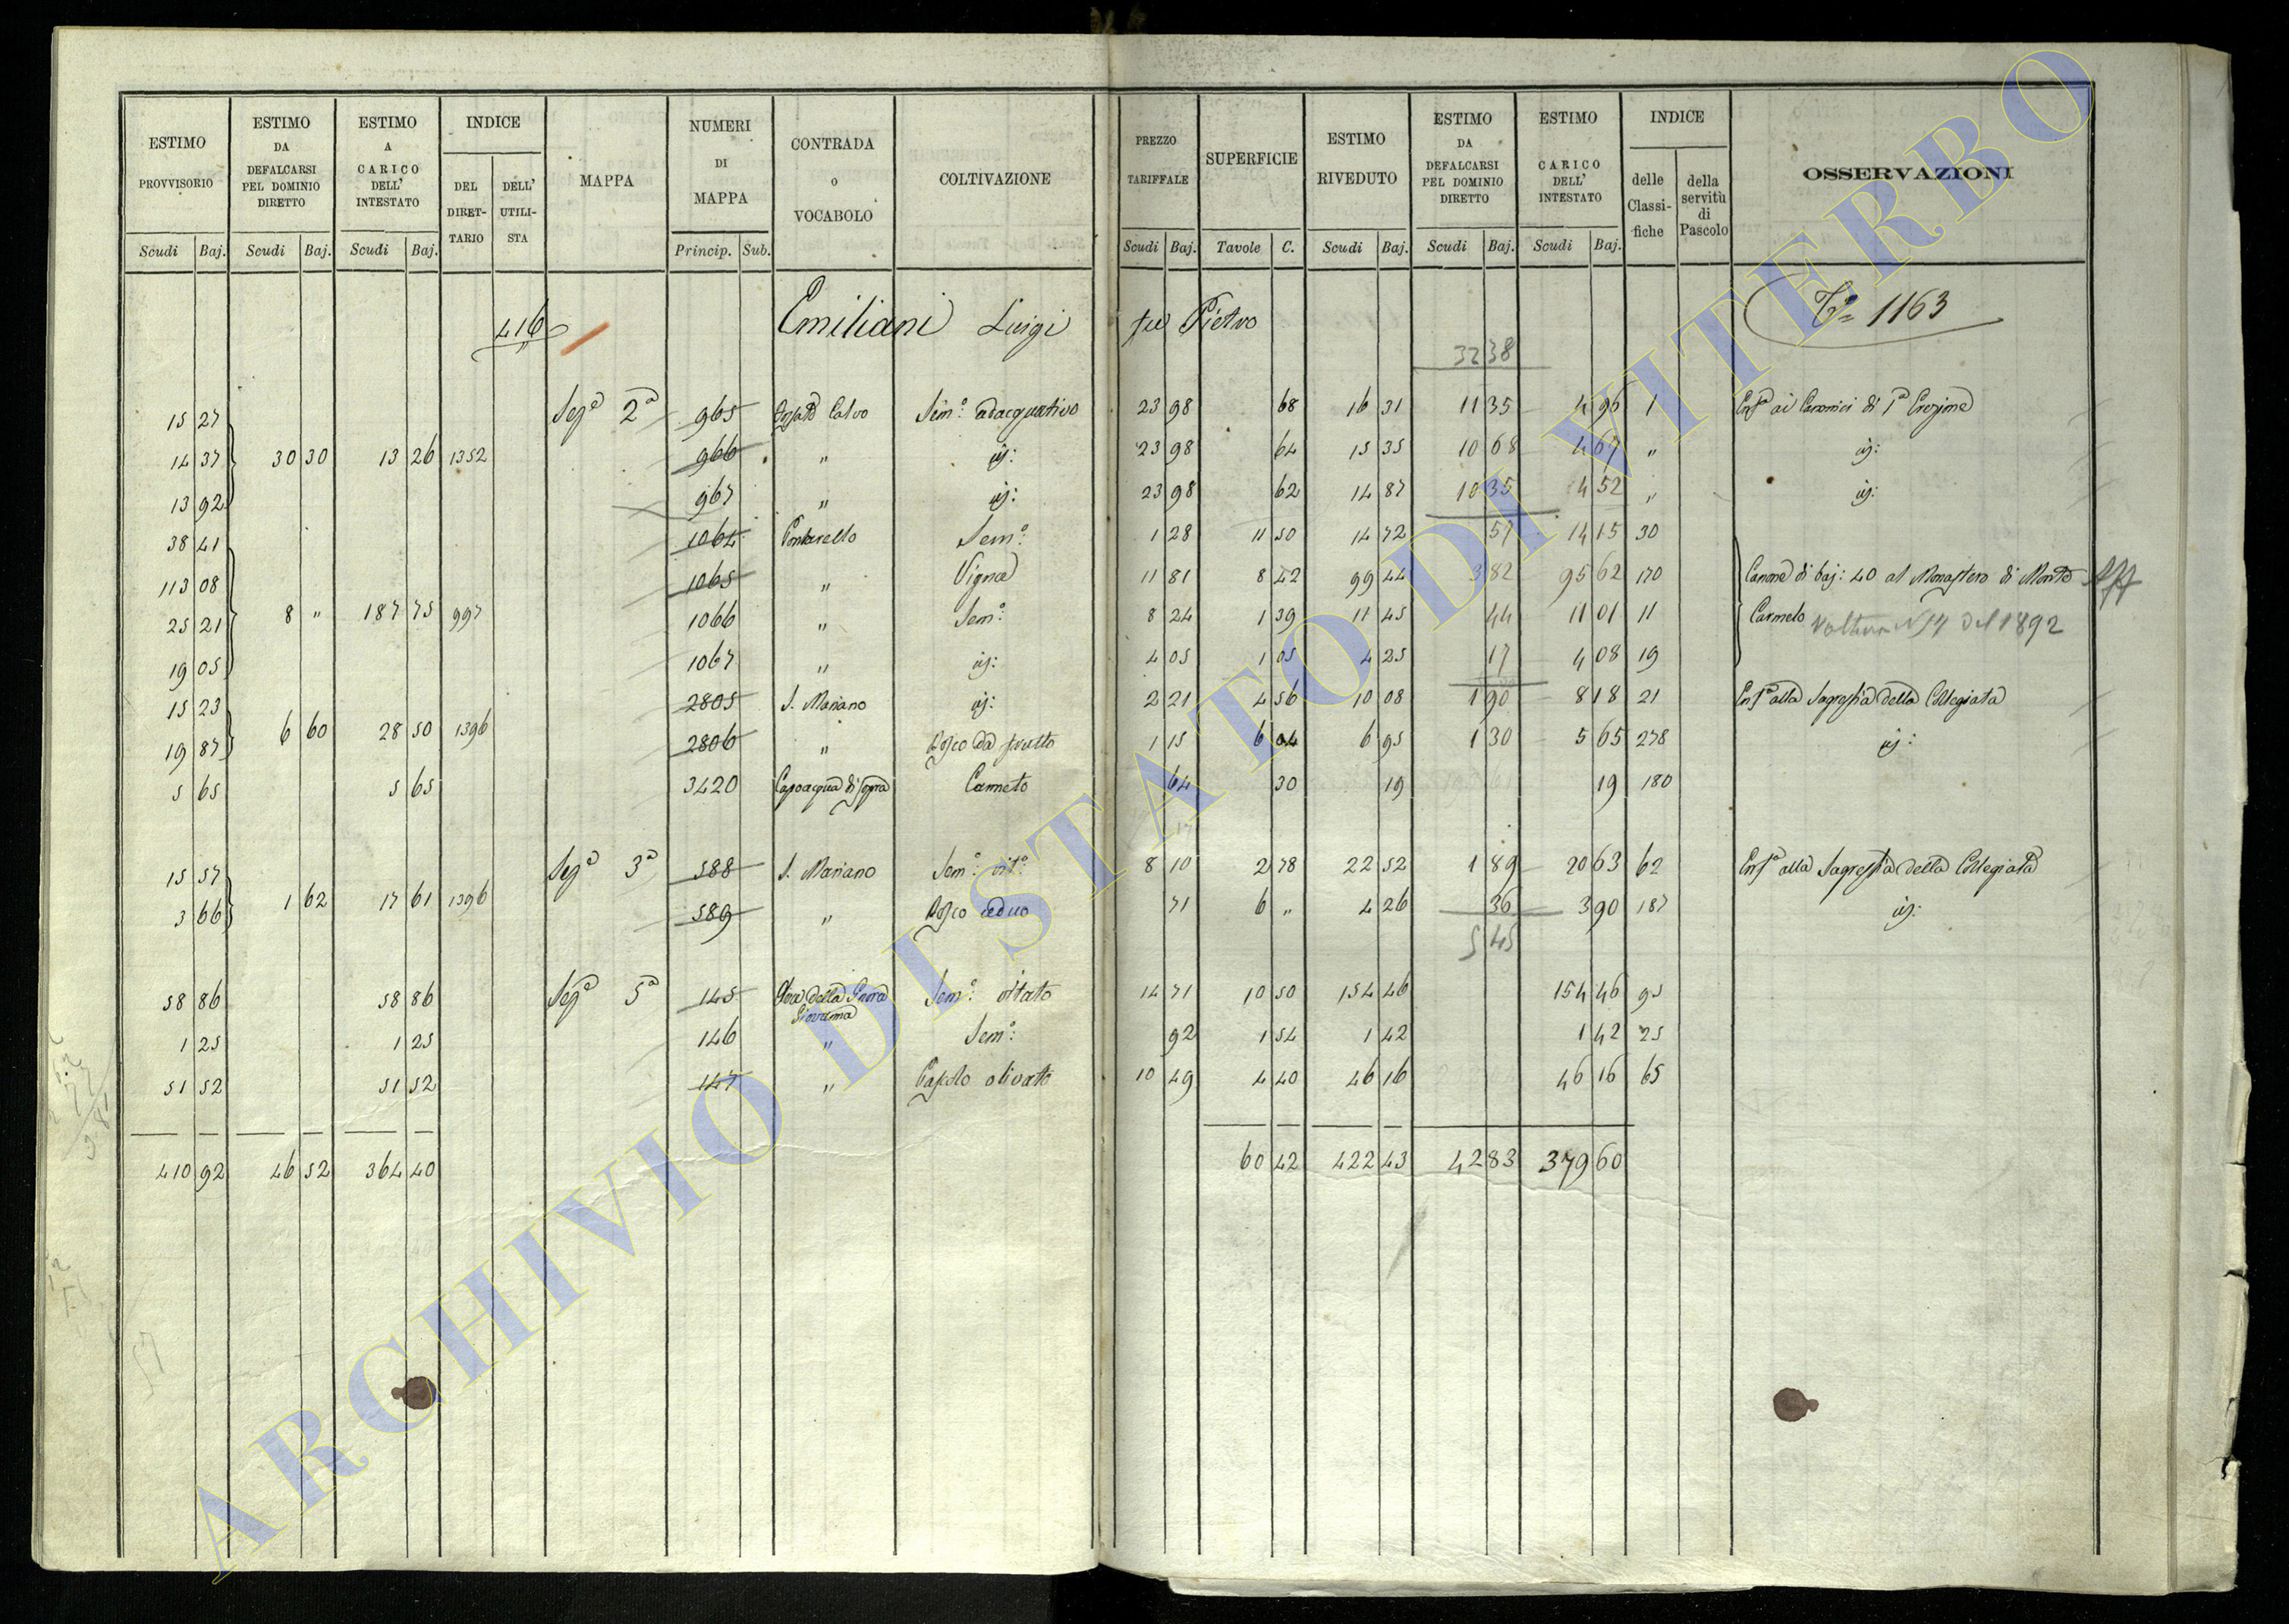 ESTIMO PROVVISORIO Scudi Baj. ESTIMO DA DEFALCARSI PEL DOMINIO DIRETTO Scudi Baj. ESTIMO A CARICO DELL' INTESTATO Scudi Baj. INDICE DEL DIRET-TARIO DELL' UTILI-STA MAPPA NUMERI DI MAPPA Princip. Sub. CONTRADA O VOCABOLO COLTIVAZIONE PREZZO TARIFFALE Scudi Baj. SUPERFICIE Tavole C. ESTIMO RIVEDUTO Scudi Baj. ESTIMO DA DEFALCARSI PEL DOMINIO DIRETTO Scudi Baj. ESTIMO CARICO DELL' INTESTATO Scudi Baj. INDICE delle Classi-fiche della servitù di Pascolo OSSERVAZIONI
416 Emiliani Luigi fu Pietro 1163
32 38
15 27 Sezᵉ 2ª 965 Calvo Sem°: adacquativo 23 98 68 16 31 11 35 4 96 1 Enfª ai Canonici di
14 37 30 30 13 26 1352 966 " id: 23 98 64 15 35 10 68 4 67 " id:
13 92 967 " id: 23 98 62 14 87 10 35 4 52 " id:
38 41 1064 Pontarello Sem°: 1 28 11 50 14 72 57 14 15 30
113 08 1065 " Vigna 11 81 8 42 99 44 3 82 95 62 170 Canone di baj: 40 al Monastero di Monte
25 21 8 " 187 75 997 1066 " Sem°: 8 24 1 39 11 45 44 11 01 11 Carmelo Voltura N 14 del 1892
19 05 1067 " id: 4 05 1 05 4 25 17 4 08 19
15 23 2805 S. Mariano id: 2 21 4 56 10 08 1 90 8 18 21 Enfª alla Sagrestia della Collegiata
19 87 6 60 28 50 1396 2806 " Bosco da frutto 1 15 6 04 6 95 1 30 5 65 278 id:
5 65 5 65 3420 Capoacqua di sopra Canneto 64 30 19 19 180
15 57 Sezᵉ 3ª 588 S. Mariano Sem°: vit°: 8 10 2 78 22 52 1 89 20 63 62 Enfª alla Sagrestia della Collegiata
3 66 1 62 17 61 1396 589 " Bosco ceduo 71 6 " 4 26 36 3 90 187 id:
5 45
58 86 58 86 Sezᵉ 5ª 145 della Giovanna Sem°: vitato 14 71 10 50 154 46 154 46 95
1 25 1 25 146 " Sem°: 92 1 54 1 42 1 42 25
51 52 51 52 147 " Pascolo olivato 10 49 4 40 46 16 46 16 65
410 92 46 52 364 40 60 42 422 43 42 83 379 60
ARCHIVIO DI STATO DI VITERBO